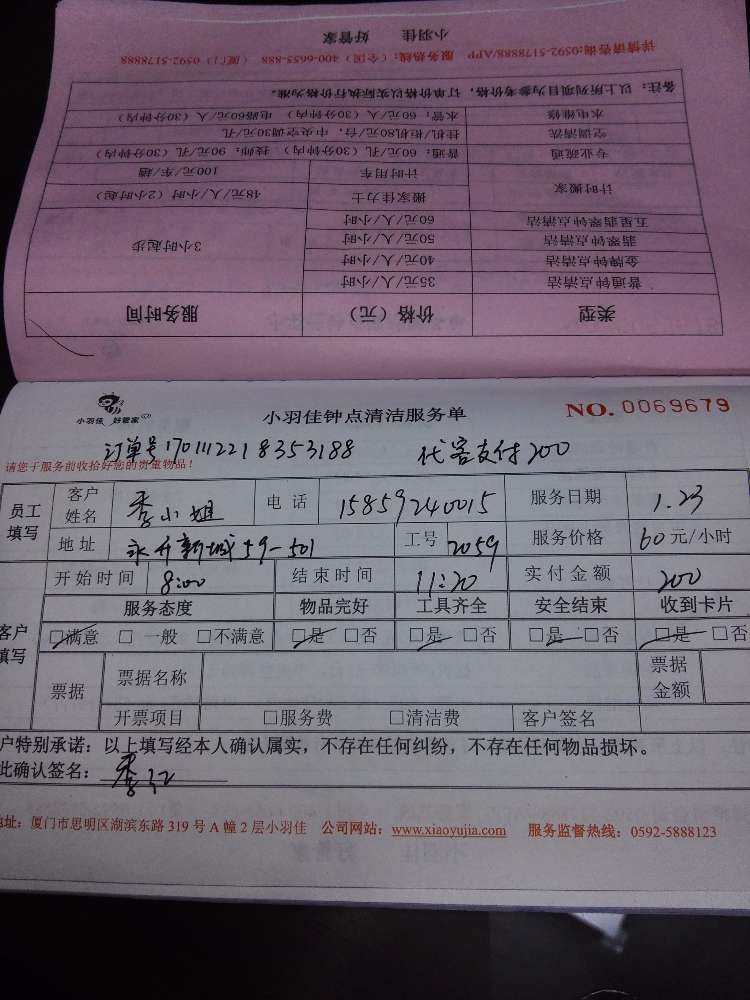 小羽佳 好管家
详情请咨询:0592-5178888/APP 服务热线：(全国) 400-6655-888 (厦门) 0592-5178888
备注：以上所列项目为参考价格，订单价格以实际执行价格为准。
水电维修 水管：60元/人（30分钟内） 电路60元/人（30分钟内）
空调清洗 挂机/柜机80元/台，中央空调30元/孔
专业疏通 普通：60元/孔（30分钟内） 技师：90元/孔（30分钟内）
计时搬家 计时用车 100元/车/趟
搬家佳力士 48元/人/小时（2小时起）
五星翡翠钟点清洁 60元/人/小时
翡翠钟点清洁 50元/人/小时 3小时起步
金牌钟点清洁 40元/人/小时
普通钟点清洁 35元/人/小时
类型 价格（元） 服务时间
小羽佳 好管家 小羽佳钟点清洁服务单 NO. 0069679
订单号1701112218353188 代客支付200
请您于服务前收拾好您的贵重物品！
员工填写 客户姓名 季小姐 电话 15859240015 服务日期 1.23
地址 永升新城59-501 工号 2059 服务价格 60元/小时
客户填写 开始时间 8:00 结束时间 11:20 实付金额 200
服务态度 物品完好 工具齐全 安全结束 收到卡片
□满意 □一般 □不满意 □是 □否 □是 □否 □是 □否 □是 □否
票据 票据名称 票据金额
开票项目 □服务费 □清洁费 客户签名
户特别承诺：以上填写经本人确认属实，不存在任何纠纷，不存在任何物品损坏。
此确认签名：季红
地址：厦门市思明区湖滨东路 319 号 A 幢 2 层小羽佳 公司网站：www.xiaoyujia.com 服务监督热线：0592-5888123